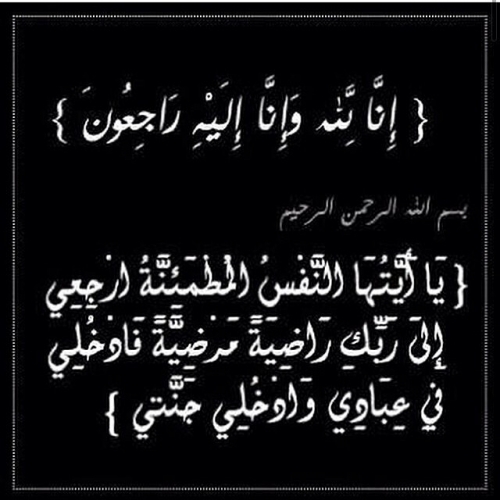 { إِنَّا لِلَّهِ وَإِنَّا إِلَيْهِ رَاجِعُونَ }
بسم الله الرحمن الرحيم
{ يَا أَيَّتُهَا النَّفْسُ الْمُطْمَئِنَّةُ ارْجِعِي
إِلَى رَبِّكِ رَاضِيَةً مَرْضِيَّةً فَادْخُلِي
فِي عِبَادِي وَادْخُلِي جَنَّتِي }